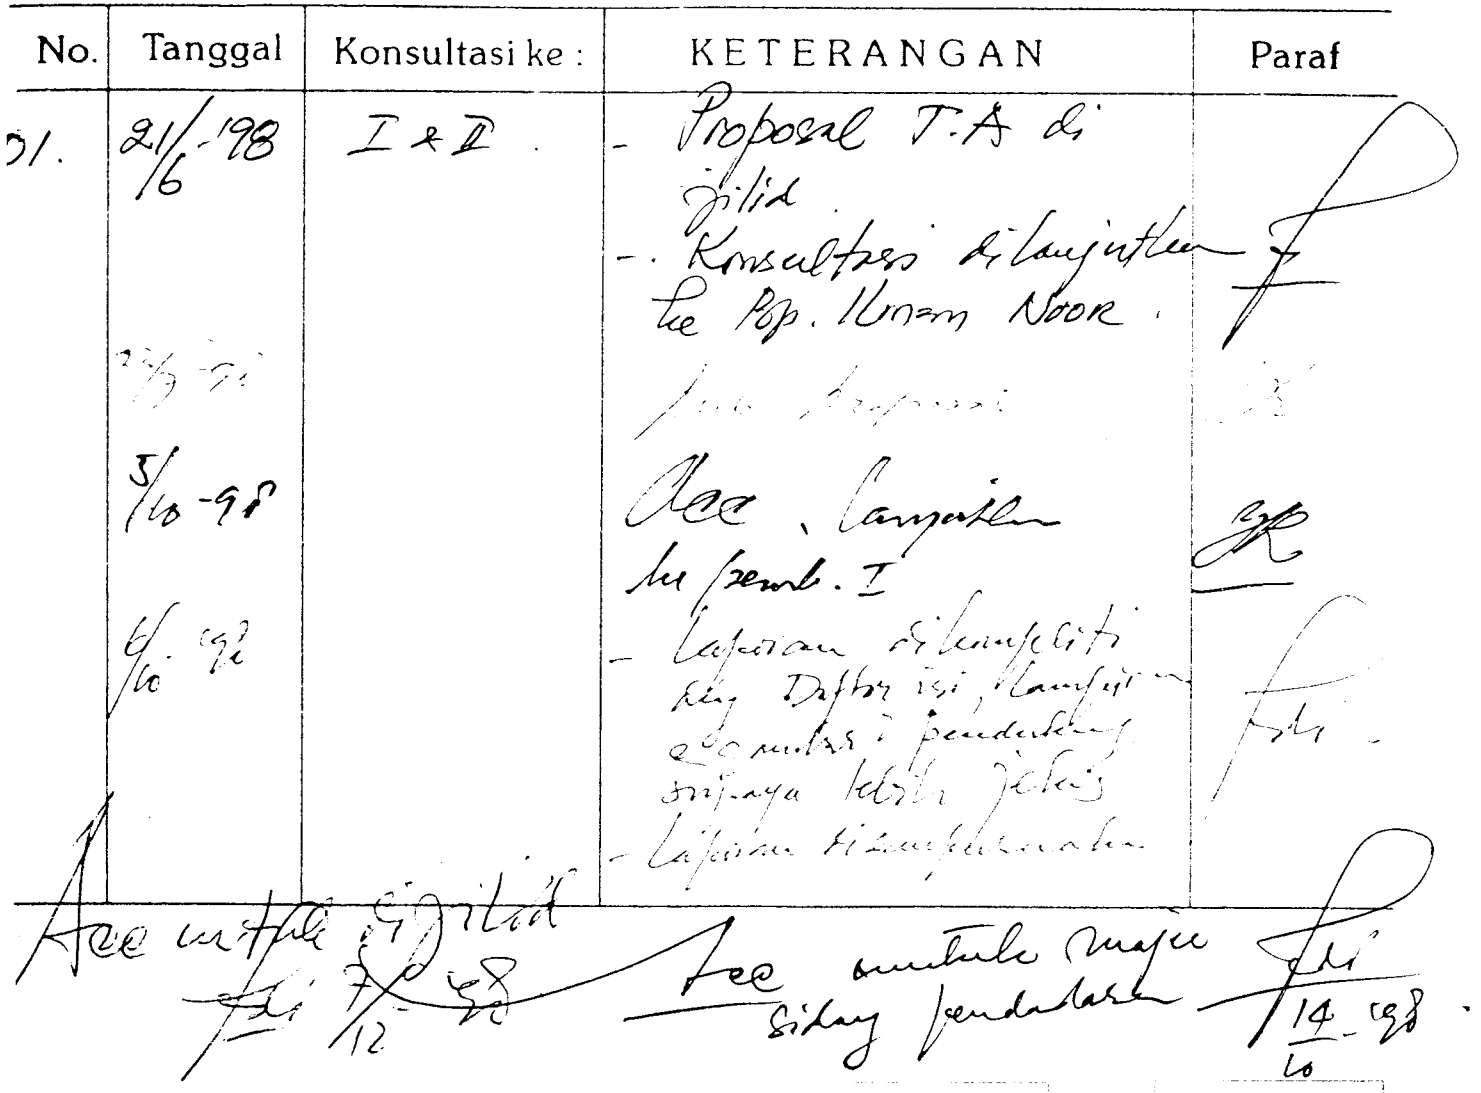 No. Tanggal Konsultasi ke : KETERANGAN Paraf
01. 21/6-'98 I & II. - Proposal T.A di
jilid.
- Konsultasi dilanjutkan
ke Bp. Noor.
Acc, lanjutkan
5/10-98
ke pemb. I
6/10-'98 - Laporan dikompliti
dng Daftar isi, lampiran
pendukung
supaya lebih jelas
- Laporan disempurnakan
Acc untuk dijilid
7/12-'98
Acc untuk maju
sidang pendadaran
14/10-'98.